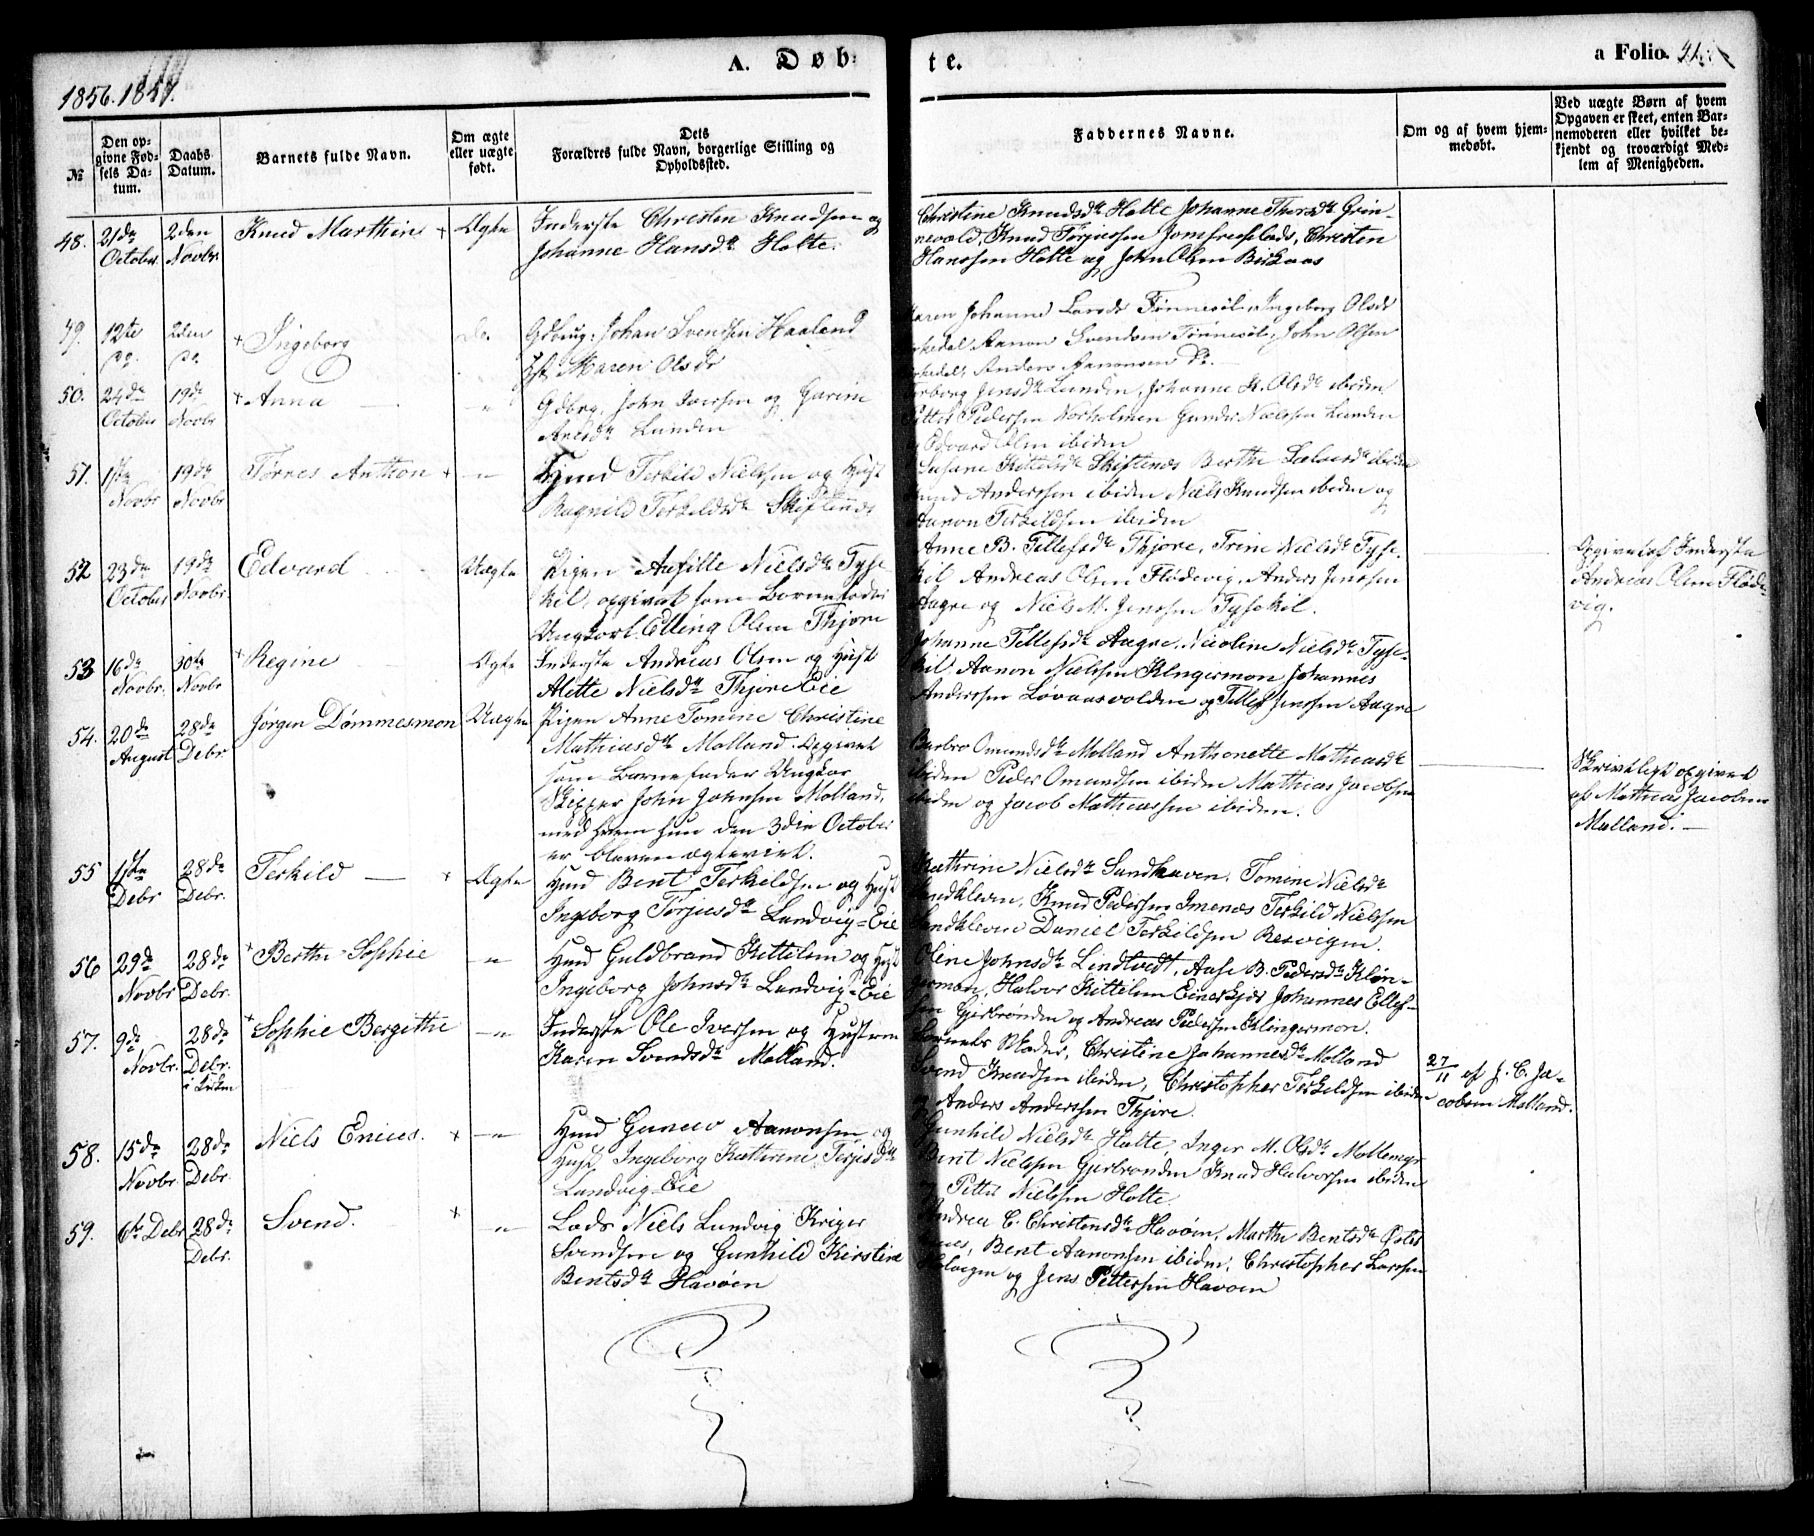 1856. 1857.
A. Døb-
te.
a Folio.
№
Den op-
givne Fød-
sels Da-
tum.
Daabs
Datum.
Barnets fulde Navn.
Om ægte
eller uægte
født.
Dets
Forældres fulde Navn, borgerlige Stilling og
Opholdssted.
Faddernes Navne.
Om og af hvem hjem-
medøbt.
Ved uægte Børn af hvem
Opgaven er skeet, enten Bar-
nemoderen eller hvilket be-
kjendt og troværdigt Med-
lem af Menigheden.
48.
21de
October
2den
Novbr.
Knud Marthin +
Ægte
Inderste Christen Knudsen og
Johanne Hansdtr Holte.
Christine Knudsdtr Holte Johanne Thorsdtr Grin-
nevold, Knud Tørjussen Jomfrueslads, Christen
Hanssen Holte og John Olsen Birkaas
49.
12te
2den
+ Ingeborg
do
Gdbrug. Johan Svendsen Haaland
Maren Olsdtr
Johanne Larsdr Tønnesøl, Ingeborg Olsdr
Aanon Svendsen Tønnesøl, John Olsen
Anders Aanonsen
50.
24de
October
19de
Novbr
+ Anna
"
Gdbrg. John Iversen og Gurine
Lunden
Jensdtr Lunden, Johanne K. Olsdtr ibiden
Petter Pedersen Norholmen Gunder Nielsen Lunden
Edvard Olsen ibiden
51.
1ste
Novbr
19de
Novbr
Tørnes Anthon +
"
Hmd Terkild Nielssen og Hust
Ragnild Terkildsdtr Skiftenes
Susane Kittelsdtr Skiftenes Berthe ibiden
Anderssen ibiden Niels Knudsen ibiden og
Aanon Terkildsen ibiden
52
23de
October
19de
Novbr.
Edvard
Uægte
Pigen Nielsdtr Tyse-
kil, opgivet som Barnefader
Ungkarl Elling Olsen Thjore
Anne B. Tellefsdtr Thjore, Trine Nielsdtr Tyse-
kil Andreas Olsen Flødevig, Anders Jenssen
Aagre og Niels M. Jenssen Tysekil.
Opgivet af Inderste
Andreas Olsen Fløde-
vig.
53
16de
Novbr.
30te
Novbr
+ Regine
Ægte
Inderste Andreas Olsen og Hust
Alette Nielsdtr Thjore Eie
Johanne Tellefsdtr Aagre. Nicoline Nielsdtr Tyse-
kil Aanon Nielssen Klngermon Johannes
Anderssen Løvaasvolden og Tellef Jenssen Aagre
54.
20de
August
28de
Debr.
Jørgen Dømmesmon
Uægte
Pigen Anne Tomine Christine
Mathiasdtr Molland. Opgivet
som Barnefader Ungkar
Skipper John Johnsen Molland,
med hvem hun den 3die October
er bleven ægteviet.
Barbro Omundsdtr Molland Anthonette Mathiasdtr
ibiden Peder Omundsen ibiden Mathias Jacobsen
ibiden og Jacob Mathiassen ibiden.
Skriftligt opgivet
af Mathias Jacobsen
Molland. —
55
1ste
Debr
28de
Debr.
Terkild — +
Ægte
Hmd Bent Terkildsen og Hust
Ingeborg Tørjusdtr Landvig=Eie
Kathrine Nielsdtr Sandkleven. Tomine Nielsdtr
Sandkleven, Knud Pedersen Imenes Terkild Nielssen
Sandkleven Daniel Terkildsen Resvigen.
56
29de
Novbr
28de
Debr.
+ Berthe Sophie
"
Hmd Guldbrand Kittelsen og Hust
Ingeborg Johnsdtr Landvig=Eie
Oline Johnsdtr Lindtvedt, Aase B. Pedersdtr Klin-
germon, Halvor Kittelsen Einerkjør Johannes Ellef-
sen Gjerbronden og Andreas Pedersen Klingermon.
57.
9de
Novbr.
28de
Debr.
i Kirken
+ Sophie Bergithe
"
Inderste Ole Iversen og Hustrue
Karen Svendsdtr Molland.
Barnets Moder, Christine Johannesdtr Molland
Svend Knudsen ibiden, Christopher Terkildsen ibiden
og Anders Anderssen Thjore.
27/11 af J. C. Ja-
cobsen Molland.
58.
15de
Novbr
28de
Debr.
Niels Enius. +
"
Hmd Gunuv Aanonsen og
Hust, Ingeborg Kathrine Terjesdtr
Landvig Eie
Gunhild Nielsdtr Holte, Inger M. Olsdtr Mollemyr
Bent Nielssen Gjerbronden Knud Halvorsen ibiden
og Petter Nielssen Holte
59.
6te Debr
28de
Debr.
Svend. +
"
Lods Niels Lundvig Kriger
Svendsen og Gunhild Kirstine
Bentsdtr Havøen
Andrea C. Christensdtr Havøen, Marthe Bentsdtr
Bent Aanonsen ibiden, Christopher Larssen
og Jens Pettersen Havøen